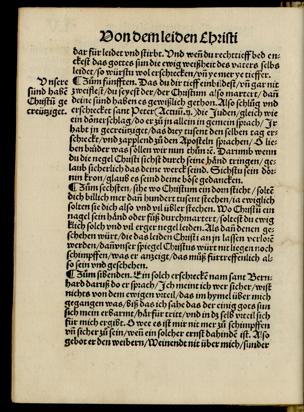 Von dem leiden Christi
dar für leidet vnd stirbt. Vnd wen du recht tieff bedenckest
das gottes sun die ewig weißheit des vaters selbs
leidet, so würstu wol erschrecken, vn ye mer ye tieffer.
¶ Züm funfften. Das du dir tieff einbildest, vn gar nit
Vnsere
sünd habe
Christü ge
creützigt.
zweiflest, du seyest der, der Christum also martert, dan
deine sünd haben es gewißlich gethon. Also schlüg vnd
erschreckt sant Peter, Actuū. ij. die Juden, gleich wie
ein dönerschlag, do er zü jn allein in gemein sprach, Jr
habt jn gecreütziget, das drey tusent den selben tag erschreckt,
vnd zapplend zü den Aposteln sprachen, O lieben
brüder was sollen wir nun thün etc. Darumb wenn
du die negel Christi sichst durch seine händ tringen, gelaub
sicherlich das deine werck seind. Sichstu sein dörnin
kron, glaub es seind deine böse gedancken.
¶ Züm sechsten, sihe wo Christum ein dorn sticht, soltē
dich billich mer dan hundert tusent stechen, ja ewiglich
solten sie dich also vnd vil übler stechen. Wo Christū ein
nagel sein händ oder füß durchmartert, soltest du ewiglich
solch vnd vil erger negel leiden. Als dan denen geschehen
würt, die das leiden Christi an jn lassen verloren
werden, dan vnser spiegel Christus würt nit liegen noch
schimpffen, was er anzeigt, das müß fürtreffenlich also
sein vnd geschehen.
¶ Züm sibenden. Ein solch erschreckē nam sant Bernhard
daruß do er sprach, Jch meint ich wer sicher, wist
nichts von dem ewigen vrteil, das im hymel über mich
gegangen was, biß das ich sahe das der einig gots sun
sich mein erbarmt, härfür tritt, vnd in dz selb vrteil sich
für mich ergibt. O wee es ist mir nit mer zü schimpffen
vn sicher zü sein, wen ein solcher ernst dahinde ist. Also
gebot er den weibern, Weinend nit über mich, sunder